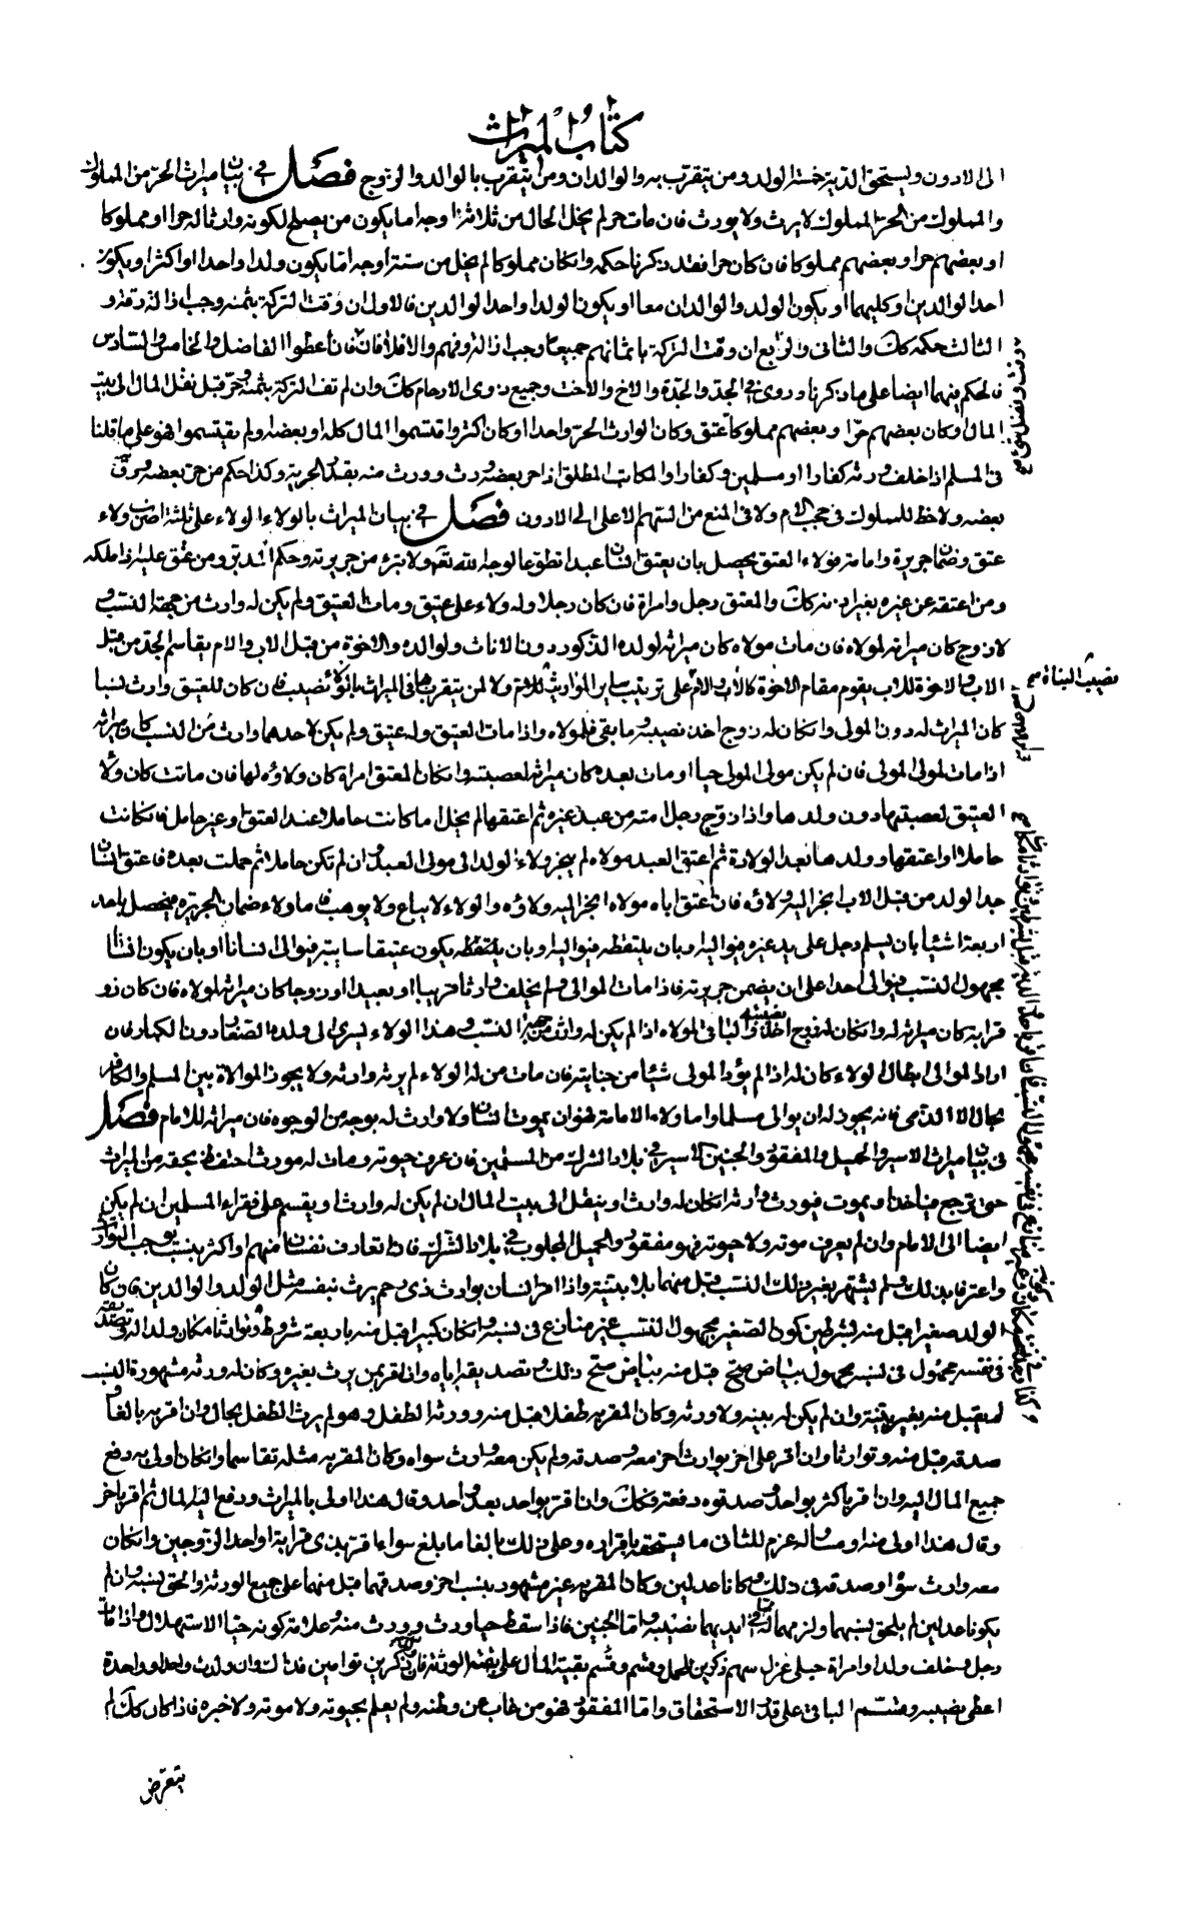 كتاب الميراث
الى الادون ويستحق الدية خمسة الولد ومن يتقرب به والوالدان ومن يتقرب بالوالد والزوج فصل في بيان ميراث الحر من المملوك
والمملوك من الحر المملوك لا يرث ولا يورث فان مات حر لم يخل الحال من ثلاثة اوجه اما يكون من يصلح لكونه وارثا له حرا او مملوكا
او بعضهم حرا وبعضهم مملوكا فان كان حرا فقد ذكرنا حكمه وان كان مملوكا لم يخل من ستة اوجه اما يكون ولدا واحدا او اكثر او يكون
احد الوالدين او كليهما او يكون الولد والوالدان معا او يكون الولد واحد الوالدين فالاول ان وفت التركة بثمنه وجب اذا لزوقه و
الثالث حكمه كك والثاني والرابع ان وفت التركة باثمانهم جميعا وجب اذا لزوقهم والا فلا فان اعطوا الفاضل والخامس والسادس
فالحكم فيهما ايضا على ما ذكرنا وروى في الجد والجدة والاخ والاخت وجميع ذوى الارحام كك وان لم تف التركة بثمنه حر قبل نقل المال الى بيت
المال او كان بعضهم حرا وبعضهم مملوكا عتق وكان الوارث الحر واحدا او كان اكثر واقتسموا المال كله او بعضه ولم يقتسموا فهو على ما قلنا
فى المسلم اذا خلف ورثة كفارا او مسلمين وكفارا والمكاتب المطلق اذا حر بعضه ورث وورث منه بقدر الحرية وكذا حكم من حر بعضه ورق
بعضه ولا حظ للمملوك فى حجب الام ولا فى المنع من السهم الاعلى الى الادون فصل في بيان الميراث بالولاء الولاء على ثلثة اضرب ولاء
عتق وضمان جريرة وامامة فولاء العتق يحصل بان يعتق انسان عبدا تطوعا لوجه الله تعالى ولا تبرء من جريرته وحكم المدبر ومن عتق عليه اذا ملكه
ومن اعتقه عن غيره بغير اذنه كك والمعتق رجل وامراة فان كان رجلا وله ولاء على عتيق ومات العتيق ولم يكن له وارث من جهة النسب و
لا زوج كان ميراثه لمولاه فان مات مولاه كان ميراثه لولده الذكور دون الاناث ولوالده والاخوة من قبل الاب والام يقاسم الجد من قبل
الاب والاخوة للاب يقوم مقام الاخوة كالاب والام على ترتيب ساير المواريث للام ولا لمن يتقرب بها فى الميراث بالولاء نصيب فان كان للعتيق وارث نسبا
كان الميراث له دون المولى وان كان له زوج اخذ نصيبه وما بقى فلمولاه واذا مات العتيق وله عتيق ولم يكن لاحدهما وارث من النسب كان ميراثه
اذا مات لمولى المولى فان لم يكن مولى المولى حيا او مات بعده كان ميراثه لعصبته وان كان المعتق امراة كان ولاؤه لها فان ماتت كان ولاء
العتيق لعصبتها دون ولدها واذا زوج رجل امته من عبد غيره ثم اعتقها لم يخل اما كانت حاملا عند العتق او غير حامل فان كانت
حاملا او اعتقها وولدها بعد الولادة ثم اعتق العبد مولاه لم ينجر ولاء الولد الى مولى العبد وان لم تكن حاملا ثم حملت بعده فاعتق انسان
جد الولد من قبل الاب انجر اليه ولاؤه فان اعتق اباه مولاه انجر اليه ولاؤه والولاء لا يباع ولا يوهب فاما ولاء ضمان الجريرة فيحصل باحد
اربعة اشيا بان يسلم رجل على يد غيره فيواليه او بان يلتقطه فيواليه او بان يلتقطه يكون عتيقا سايبة فيوالى انسانا او بان يكون انسانا
مجهول النسب فيوالى احدا على ان يضمن جريرته فاذا مات الموالى ولم يخلف وارثا قريبا او بعيدا او زوجا كان ميراثه لمولاه فان كان ذو
قرابة كان ميراثه له وان كان له زوج اخذ نصيبه والباقى لمولاه اذا لم يكن له وارث من جهة النسب وهذا الولاء يسرى الى ولده الصغار دون الكبار فان
اراد الموالى ابطال الولاء كان له اذا لم يؤد المولى شيئا من جنايته فان مات من له الولاء لم يرثه وارثه ولا يجوز الموالاة بين المسلم والكافر
بحال الا الذمى فانه يجوز له ان يوالى مسلما واما ولاء الامامة فهو ان يموت انسان ولا وارث له بوجه من الوجوه فان ميراثه للامام فصل
فى بيان ميراث الاسير والحميل والمفقود والجنين الاسير في بلاد الشرك من المسلمين فان عرف حيوته ومات له مورث احتفظ بحقه من الميراث
حتى يرجع فياخذ او يموت فيورث وارثه ان كان له وارث او ينقل الى بيت المال ان لم يكن له وارث او يقسم على فقراء المسلمين ان لم يكن
ايضا الى الامام وان لم يعرف موته ولا حيوته فهو مفقود والحميل المجلوب في بلاد الشرك فاذا تعارف نفسان منهم او اكثر بنسب يوجب التوارث
واعترفا بذلك ولم يشتهر بغير ذلك النسب قبل منهما بلا بينة واذا اقر انسان بوارث ذى رحم يرث نفسه مثل الولد والوالدين فان كان
الولد صغيرا قبل منه بشرطين كون الصغير مجهول النسب غير منازع فى نسبه وان كان كبيرا قبل منه باربعة شروط
فى نفسه مجهول فى نسبه مجهول بياض صح قبل منه بياض صح ذلك وتصديقه اياه وان اقر بمن يرث بغيره وكان له ورثة مشهورة النسب
لم يقبل منه بغير بينة وان لم يكن له بينة ولا ورثة وكان المقر به طفلا قبل منه وورثه الطفل وهو لم يرث الطفل بحال وان اقر به بالغا و
صدقه قبل منه وتوارثا وان اقر على اخر بوارث اخر معه وصدقه ولم يكن معه وارث سواه وكان المقر به مثله تقاسما وان كان اولى به دفع
جميع المال اليه وان اقر باكثر بواحد وصدقوه دفعة فكك وان اقر بواحد بعد واحد وقال هذا اولى بالميراث ودفع اليه المال ثم اقر باخر
وقال هذا اولى منه او مساله غرم للثانى ما يستحقه باقراره وعلى ذلك بالغا ما بلغ سواء اقر بذى قرابة او احد الزوجين وان كان
معه وارث سواه وصدقه فى ذلك وكانا عدلين وكان المقر به غير مشهور بنسب اخر وصدقهما قبل منهما على جميع الورثة والحق بنسبه وان لم
يكونا عدلين لم يلحق بنسبهما ولزمهما في ايديهما نصيبه واما الجنين فاذا سقط حيا ورث وورث منه وعلامة كونه حيا الاستهلال واذا مات
رجل وخلف ولدا وامراة حبلى عزل سهم ذكرين للحمل وقسم وقسم بقية المال على بقية الورثة فان ولدت ذكرين توامين فذاك وان ولدت واحدا او واحدة
اعطى نصيبه وقسم الباقى على قدر الاستحقاق واما المفقود فهو من غاب عن وطنه ولم يعلم بحيوته ولا موته ولا خبره فاذا كان كك لم
يتعرض
نصيب البناة صح